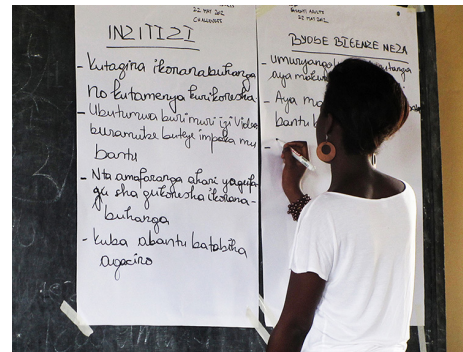 22 MAY 2012
CHALLENGES
INZITIZI
- Kutagira ikoranabuhanga
no kutamenya kurikoresha
- Ubutumwa buri muri iyi Video
buramutse buteye impaka mu
bantu
- Nta amafaranga ahari yo
gu sha gukoresha ikorana-
buhanga
- Kuba abantu batabiha
agaciro
22 MAY 2012
BYOSE BIGENZE NEZA
- umuryango
aya maku
- Aya ma
bantu b
-